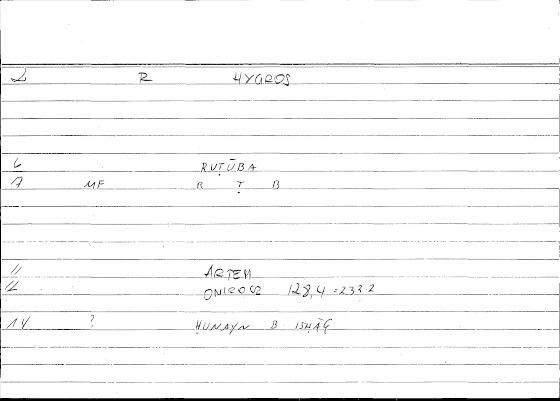 2 R HYGROS
6 RUṬŪBA
7 MF R Ṭ B
11 ARTEM
12 ONIROCR 128,4 = 233.2
14 ? ḤUNAYN B ISḤĀQ